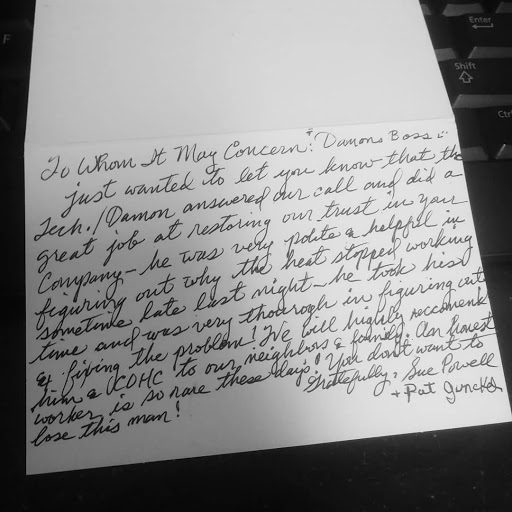 To Whom It May Concern: + Damons Boss :)
Just wanted to let you know that the
Tech./Damon answered our call and did a
great job at restoring our trust in your
Company - he was very polite & helpful in
figuring out why the heat stopped working
sometime late last night - he took his
time and was very thourough in figuring out
& fixing the problem! We will highly reccomend
him & CDHC to our neighbors & family. An honest
worker is so rare these days! You don't want to
lose this man!
Gratefully, Sue Powell
+ Pat Junckes
Enter
Shift
Ctrl
F